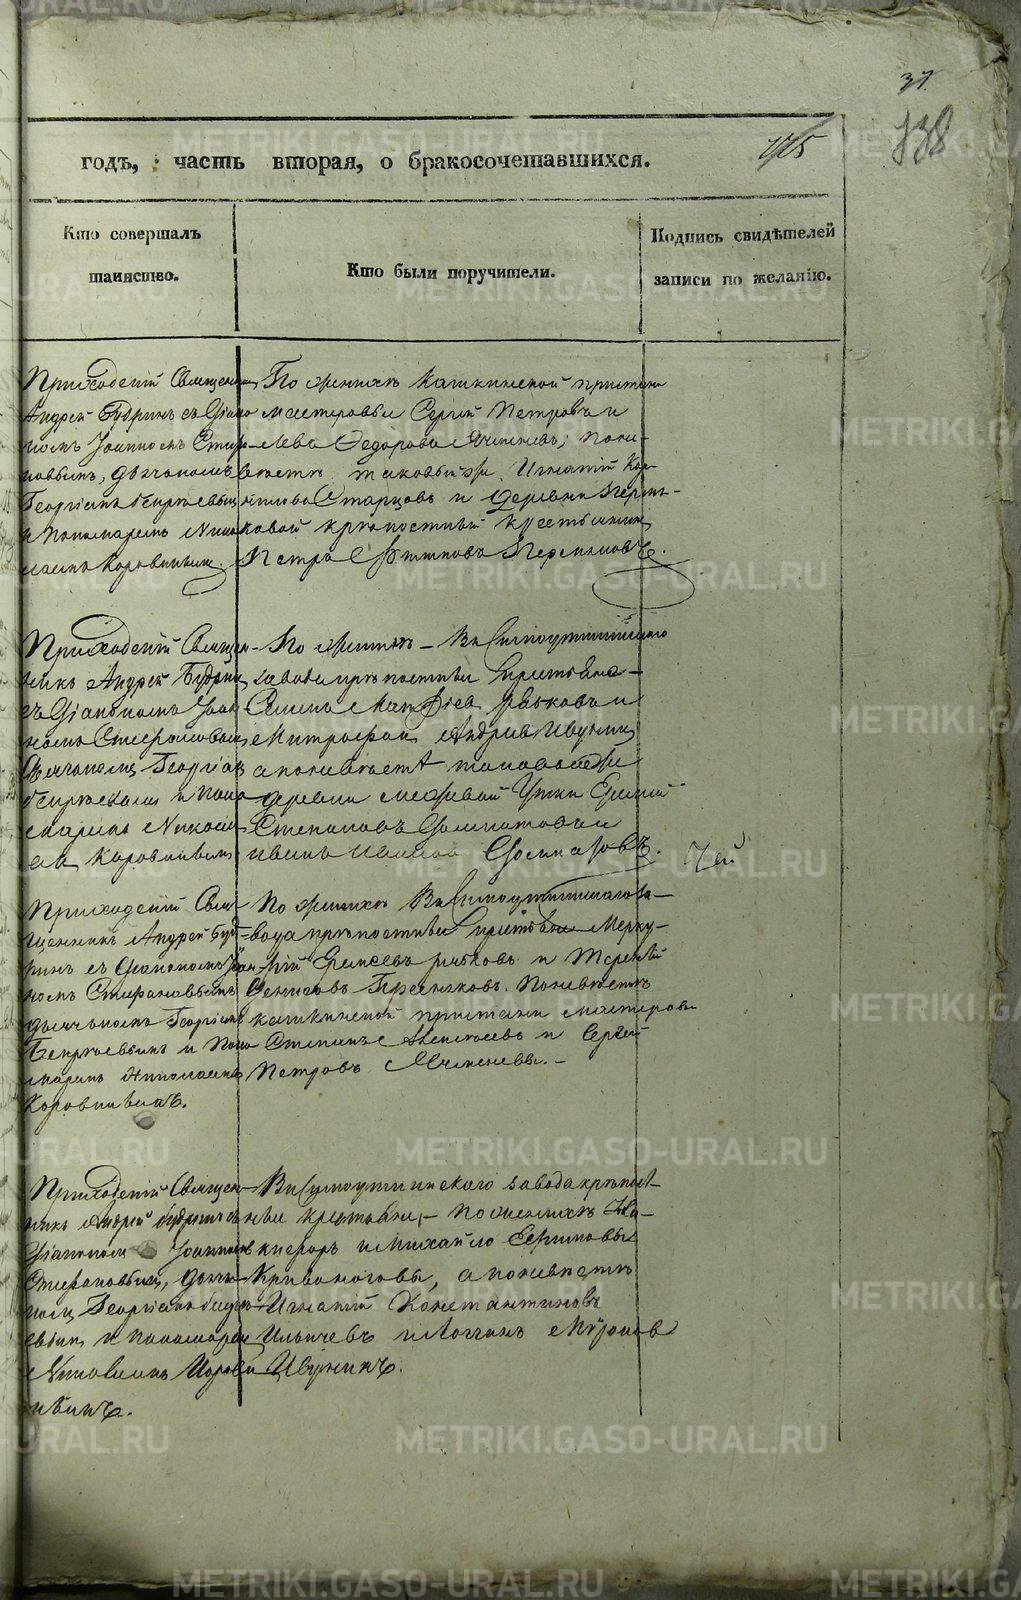 31
138
175
годъ, часть вторая, о бракосочетавшихся.
Кто совершалъ
таинство.
Кто были поручители.
Подпись свидѣтелей
записи по желанію.
Приходскій Священникъ
Андрей Будринъ съ Діако
номъ Іоанномъ Стефа
новымъ, дьячкомъ
Георгіемъ
и Пономаремъ Нико
лаемъ Коровинымъ.
По женихѣ Кашкинской пристани
мастеровые Сергей Петровъ и
Лева Федоровъ Ячменевъ; по не-
вѣстѣ таковыхже Игнатій Кор
ниловъ Старцовъ и деревни Пермя-
ковой крѣпостный крестьянинъ
Петръ Филиповъ Пермяковъ.
Приходскій Священ-
никъ Андрей Будринъ
съ Діакономъ Іоан
номъ Стефановымъ
Дьячкомъ Георгіемъ
и Поно
маремъ Никола
емъ Коровинымъ
По женихѣ – Висимоуткинскаго
завода крѣпостные крестьяне –
Семенъ Матфіев Рябковъ и
Митрофан Андріев Ивукинъ
а по невѣстѣ таковыеже
деревни Межевой Утки Еремей
Степановъ Соломатовъ и
Иванъ Ивановъ Соломатовъ.
Приходскій Свя
щенникъ Андрей Буд-
ринъ съ Діакономъ Іоан-
номъ Стефановымъ
дьячкомъ Георгіемъ
и Поно
маремъ Николаемъ
Коровинымъ.
По женихѣ Висимоуткинскаго за-
вода крѣпостные крестьяне Мерку-
рій Елисеевъ Рябковъ и Терентій
Денисовъ Прѣсняковъ. По невѣстѣ
Кашкинской пристани мастеровые
Степанъ Алексѣевъ и Сергей
Петровъ Ячменевы. –
Приходскій Священ-
никъ Андрей Будринъ съ
Діакономъ Іоанномъ
Стефановымъ, дьяч-
комъ Георгіемъ
и пономаремъ
Николаемъ Корови
нымъ.
Висимоуткинскаго завода крѣпост-
ные крестьяне, – по женихѣ Ни-
кифоръ и Михайло Ефимовы
Кривоноговы, а по невѣстѣ
Игнатій Константиновъ
Ильичевъ и Логгинъ Мѵроновъ
Ивукинъ.